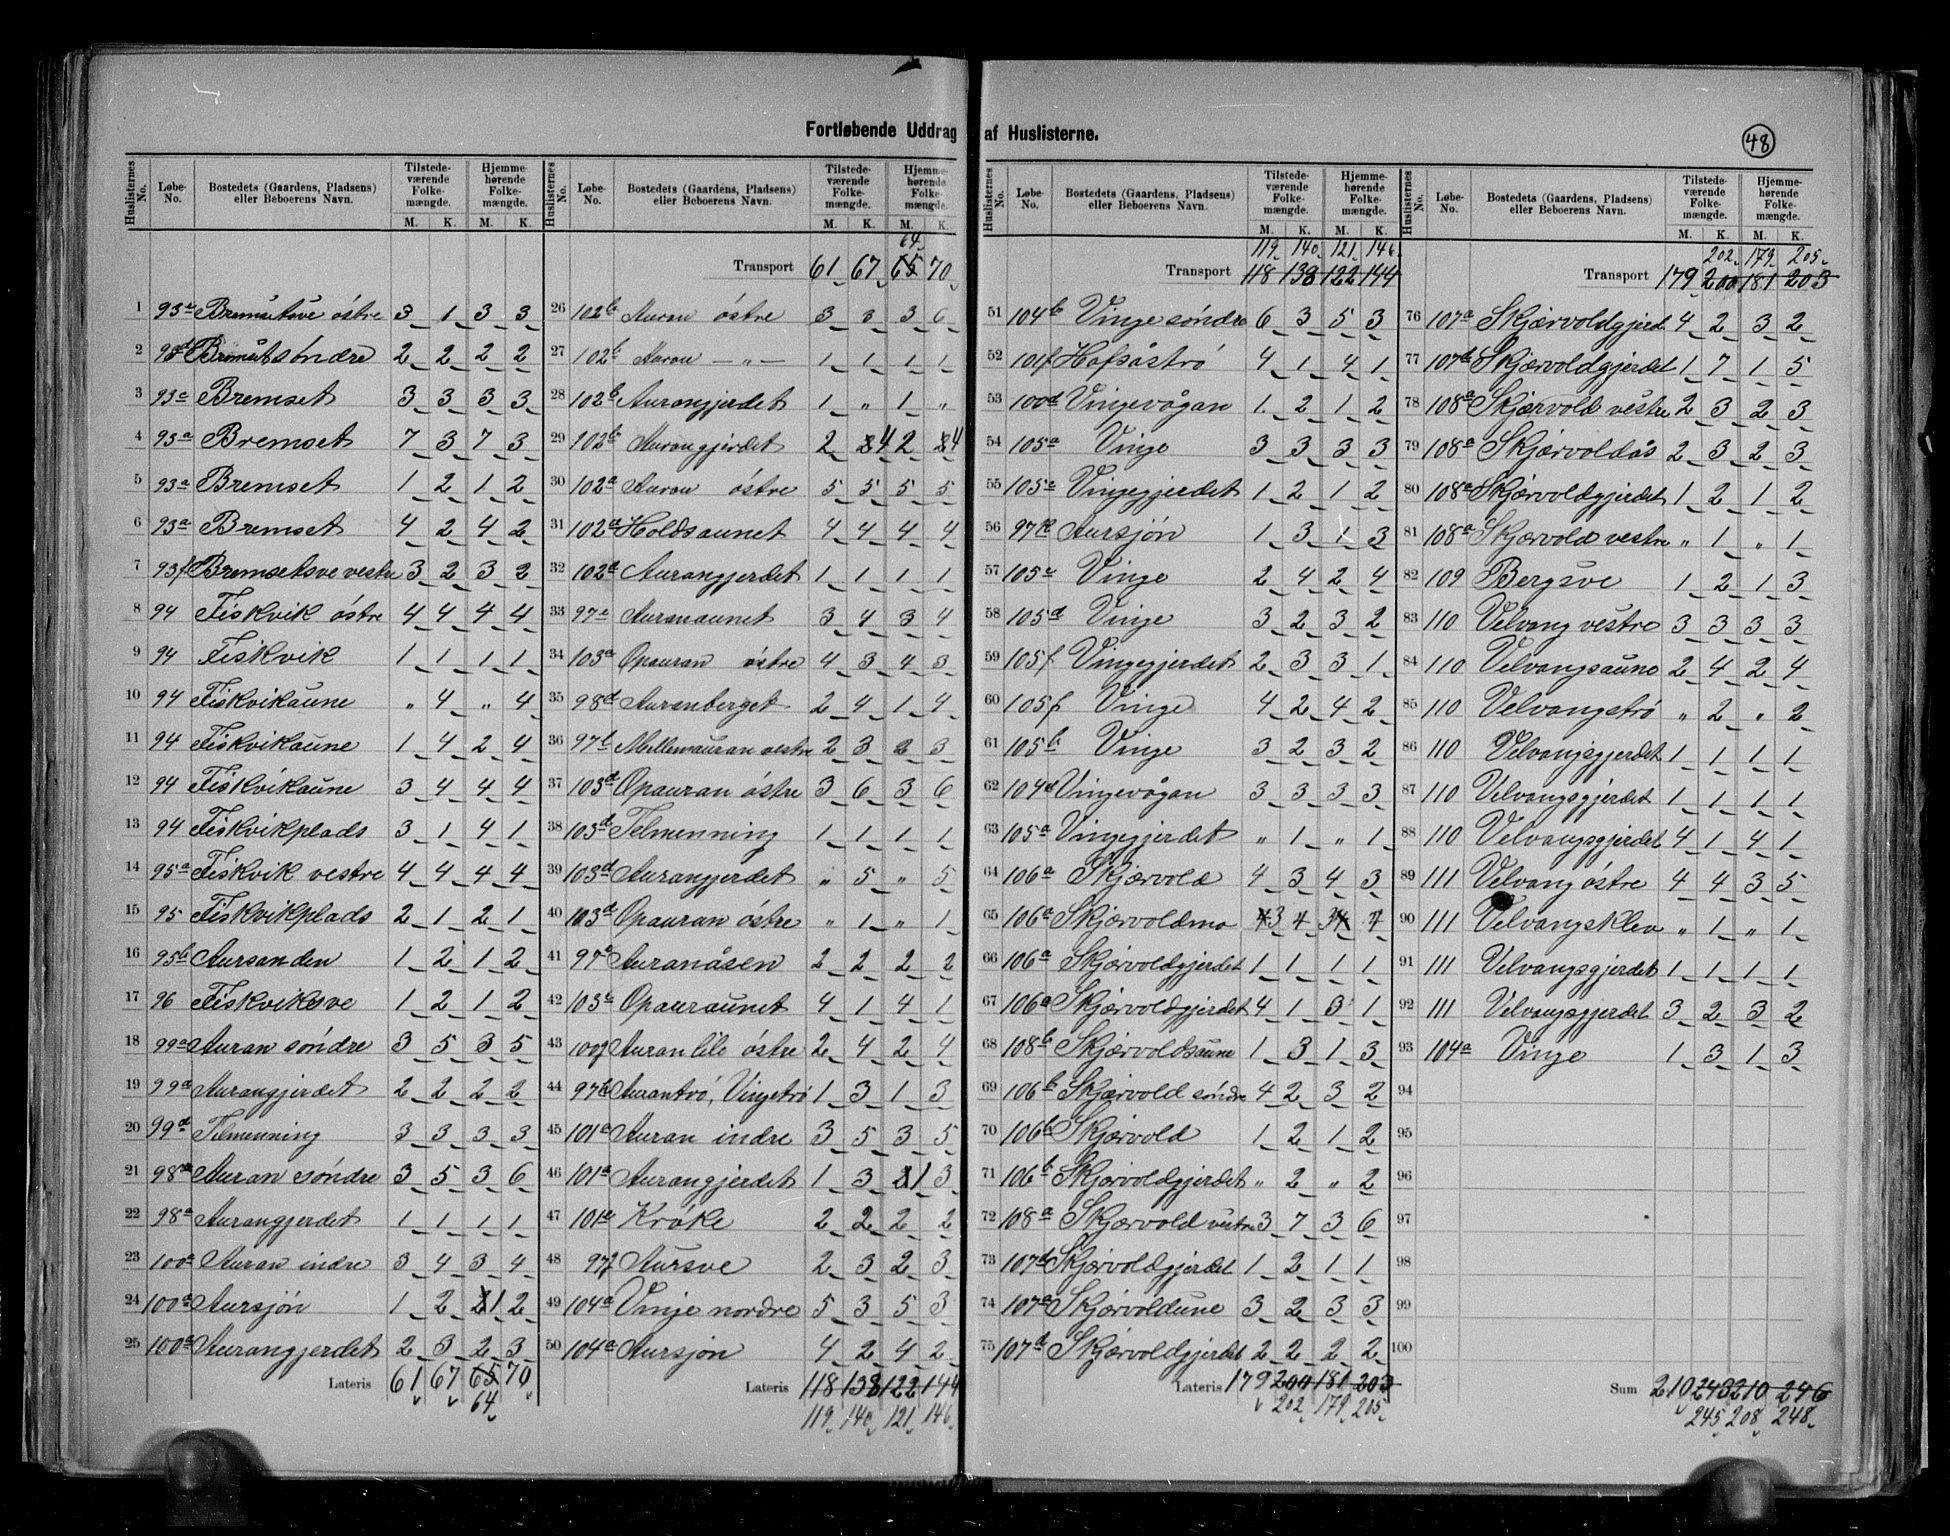 Fortløbende Uddrag af Huslisterne.
48
Huslisternes No. Løbe-No. Bostedets (Gaardens, Pladsens) eller Beboerens Navn. Tilstedeværende Folkemængde. M. K. Hjemmehørende Folkemængde. M. K.
1 93 Bremsetsve östre 3 1 3 3
2 Bremset söndre 2 2 2 2
3 93 Bremset 3 3 3 3
4 93a Bremset 7 3 7 3
5 93a Bremset 1 2 1 2
6 93a Bremset 4 2 4 2
7 93f Bremsetsve vestre 3 2 3 2
8 94 Fiskvik östre 4 4 4 4
9 94 Fiskvik 1 1 1 1
10 94 Fiskvikaune " 4 " 4
11 94 Fiskvikaune 1 4 2 4
12 94 Fiskvikaune 3 4 4 4
13 94 Fiskvikplads 3 1 4 1
14 95a Fiskvik vestre 4 4 4 4
15 95 Fiskvikplads 2 1 2 1
16 95b Aursanden 1 2 1 2
17 96 Fiskviksve 1 2 1 2
18 99a Auran söndre 3 5 3 5
19 99a Aurangjerdet 2 2 2 2
20 99d Telmenning 3 3 3 3
21 98a Auran söndre 3 5 3 6
22 98a Aurangjerdet 1 1 1 1
23 100a Auran indre 3 4 3 4
24 100a Aursjön 1 2 1 2
25 100a Aurangjerdet 2 3 2 3
Lateris 61 67 65 70
64
Huslisternes No. Løbe-No. Bostedets (Gaardens, Pladsens) eller Beboerens Navn. Tilstedeværende Folkemængde. M. K. Hjemmehørende Folkemængde. M. K.
64
Transport 61 67 65 70
26 102b Auran östre 3 3 6
27 102b Auran — " — 1 1 1 1
28 102b Aurangjerdet 1 " 1 "
29 102b Aurangjerdet 2 4 2 4
30 102a Auran östre 5 5 5 5
31 102a Holdsaunet 4 4 4 4
32 102a Aurangjerdet 1 1 1 1
33 97 Auranaunet 3 4 3 4
34 103a Opauran östre 4 3 4 3
35 98d Auranberget 2 4 1 4
36 97b Mellemauran vestre 2 3 2 3
37 103d Opauran östre 3 6 3 6
38 103d Telmenning 1 1 1 1
39 103d Aurangjerdet " 5 " 5
40 103d Opauran östre " 1 " 1
41 97a Auranåsen 2 2 2 2
42 103 Opauraunet 4 1 4 1
43 100f Auran lile östre 2 4 2 4
44 97b Aurantrö, Vingetrö 1 3 1 3
45 101a Auran indre 3 5 3 5
46 101a Aurangjerdet 1 3 1 3
47 101 Kröke 2 2 2 2
48 97f Aursve 2 3 2 3
49 104a Vinje nordre 5 3 5 3
50 104a Aursjön 4 2 4 2
Lateris 118 138 122 144
119 140 121 146
Huslisternes No. Løbe-No. Bostedets (Gaardens, Pladsens) eller Beboerens Navn. Tilstedeværende Folkemængde. M. K. Hjemmehørende Folkemængde. M. K.
119 140 121 146
Transport 118 138 122 144
51 104b Vinge söndre 6 3 5 3
52 101f Hofsåströ 4 1 4 1
53 100d Vingevågan 1 2 1 2
54 105a Vinge 3 3 3 3
55 105a Vingegjerdet 1 2 1 2
56 97k Aursjön 1 3 1 3
57 105 Vinge 2 4 2 4
58 105d Vinge 3 2 3 2
59 105f Vingegjerdet 2 3 3 1
60 105f Vinge 4 2 4 2
61 105b Vinge 3 2 3 2
62 104d Vingevågan 3 3 3 3
63 105a Vingegjerdet " 1 " 1
64 106a Skjærvold 4 3 4 3
65 106a Skjærvoldmo 3 4 3
66 106a Skjærvoldgjerdet 1 1 1 1
67 106a Skjærvoldgjerdet 4 1 3 1
68 108b Skjærvoldsaune 1 3 1 3
69 106b Skjærvold söndre 4 2 3 2
70 106b Skjærvold 1 2 1 2
71 106b Skjærvoldgjerdet " 2 " 2
72 108a Skjærvold vestre 3 7 3 6
73 107d Skjærvoldgjerdet 1 2 1 1
74 107a Skjærvoldune 3 2 3 3
75 107d Skjærvoldgjerdet 2 2 2 2
Lateris 179 200 181 203
202 179 205
Huslisternes No. Løbe-No. Bostedets (Gaardens, Pladsens) eller Beboerens Navn. Tilstedeværende Folkemængde. M. K. Hjemmehørende Folkemængde. M. K.
202 179 205
Transport 179 200 181 203
76 107a Skjærvoldgjerd 4 2 3 2
77 107b Skjærvoldgjerdet 1 7 1 5
78 108a Skjærvold vestre 2 3 2 3
79 108a Skjærvoldås 2 3 2 3
80 108a Skjærvoldgjerdet 1 2 1 2
81 108a Skjærvold vestre " 1 " 1
82 109 Bergsve 1 2 1 3
83 110 Velvang vestre 3 3 3 3
84 110 Velvangsaune 2 4 2 4
85 110 Velvangströ " 2 " 2
86 110 Velvangsgjerdet 1 1 1 1
87 110 Velvangsgjerdet 1 1 1 1
88 110 Velvangsgjerdet 4 1 4 1
89 111 Velvang östre 4 4 3 5
90 111 Velvangsklev " 1 " 1
91 111 Velvangsgjerdet 1 1 1 1
92 111 Velvangsgjerdet 3 2 3 2
93 104a Vinge 1 3 1 3
94
95
96
97
98
99
100
Sum 210 243 210 246
245 208 248